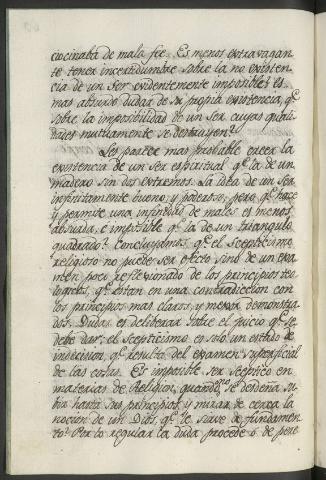 ciocinaba de mala fee. Es menos extravagan
te tener incertidumbre sobre la no existen
cia de un Ser evidentemente imposible: es
mas absurdo dudar de su propia existencia, q.e
sobre la imposibilidad de un Ser cuyas quali
dades mutuamente se destruyen.
Les parece mas probable creer la
existencia de un Ser espiritual q.e la de un
madero sin dos extremos. La idea de un Ser
infinitamente bueno, y poderoso, pero q.e hace
y permite una infinidad de males es menos
absurda, e imposible q.e la de un triangulo
quadrado. Concluyamos, q.e el Scepticismo
religioso no puede ser efecto sinó de un exa
men poco reflexionado de los principios teo
logicos, q.e están en una contradiccion con
los principios mas claros, y menor demonstra
dos. Dudar es deliberar sobre el juicio q.e se
debe dar; el Scepticismo es solo un estado de
indecision, q.e resulta del examen superficial
de las cosas. Es imposible ser Sceptico en
materias de Religion, quando se desdeña su
bir hasta sus principios, y mirar de cerca la
nocion de un Dios, q.e le sirve de fundamen
to. Por lo regular la duda procede ó de pere